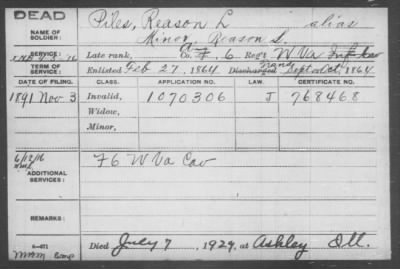 DEAD
NAME OF SOLDIER:
Piles, Reason L alias
Minor, Reason L.
SERVICE:
Late rank, Co. F, 6 Reg't W Va Inf
TERM OF SERVICE:
Enlisted Feb 27, 1864 Discharged Sept 1864
DATE OF FILING. CLASS. APPLICATION NO. LAW. CERTIFICATE NO.
1891 Nov. 3 Invalid, 1070306 J 768468
Widow,
Minor,
6/12/16
F 6 W Va Cav
ADDITIONAL SERVICES:
REMARKS:
Died July 7, 1929, at Ashley Ill.